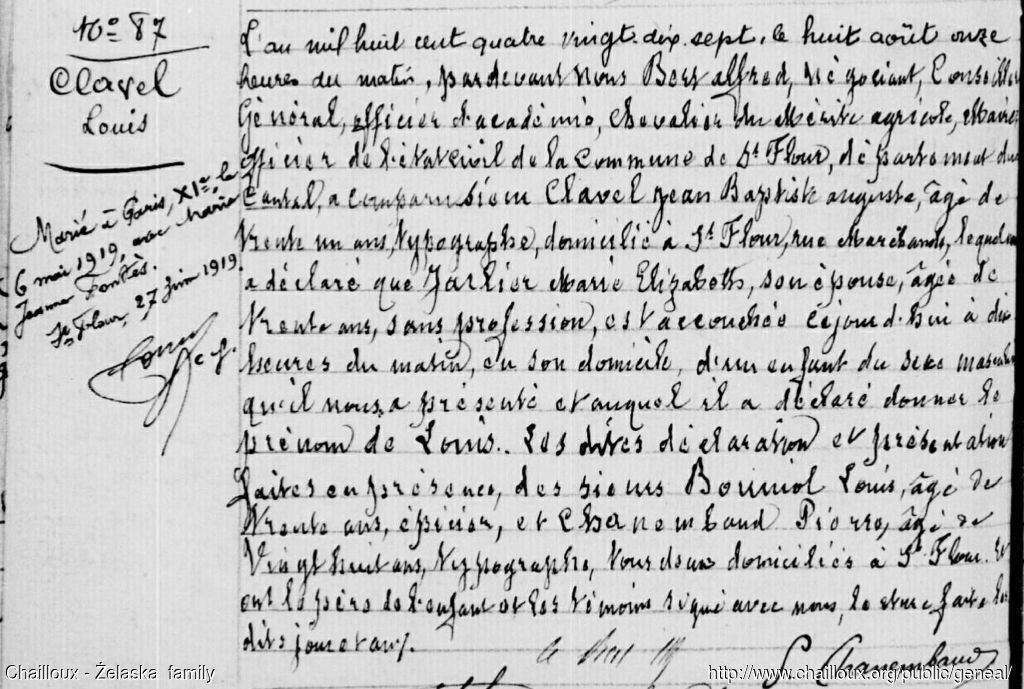 No 87
Clavel
Louis
Marié à Paris, XIe, le
6 mai 1919, avec Marie
Jeanne Fontès.
St Flour, 27 juin 1919.
L'an mil huit cent quatre vingt-dix-sept, le huit août onze
heures du matin, pardevant Nous Bory alfred, Négociant, Conseiller
Général, officier d'académie, Chevalier du Mérite agricole, Maire
officier de l'état civil de la Commune de St Flour, département du
Cantal, a comparu sieur Clavel Jean Baptiste auguste, âgé de
trente un ans, typographe, domicilié à St Flour, rue Marchande, lequel
a déclaré que Jarlier Marie Elizabeth, son épouse, âgée de
trente ans, sans profession, est accouchée cejourd'hui à dix
heures du matin, en son domicile, d'un enfant du sexe masculin
qu'il nous a présenté et auquel il a déclaré donner le
prénom de Louis. Les dites déclaration et présentation
faites en présence, des sieurs Bouniol Louis, âgé de
trente ans, épicier, et Chanembaud Pierre, âgé de
vingt huit ans, typographe, tous deux domiciliés à St Flour. Et
ont le père de l'enfant et les témoins signé avec nous, lecture faite les
dits jour et an.
P. Chanembaud
Chailloux - Żelaska family
http://www.chailloux.org/public/geneal/